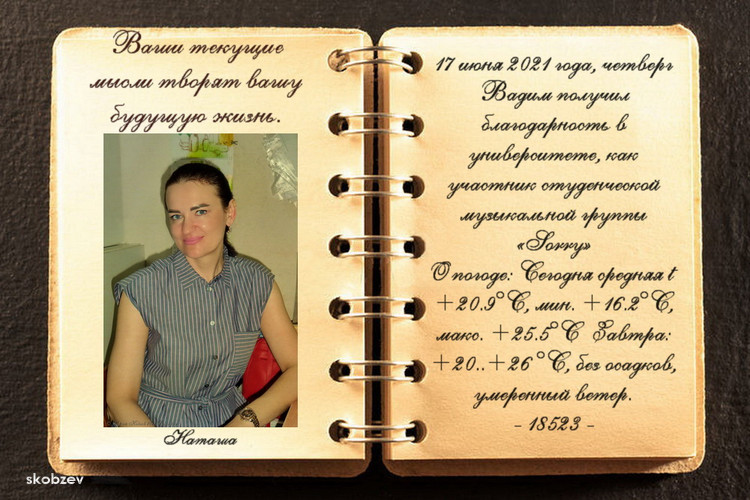 Ваши текущие
мысли творят вашу
будущую жизнь.
Наташа
17 июня 2021 года, четверг
Вадим получил
благодарность в
университете, как
участник студенческой
музыкальной группы
«Sorry»
О погоде: Сегодня средняя t
+20.9°C, мин. +16.2°C,
макс. +25.5°C Завтра:
+20..+26 °C, без осадков,
умеренный ветер.
- 18523 -
skobzev